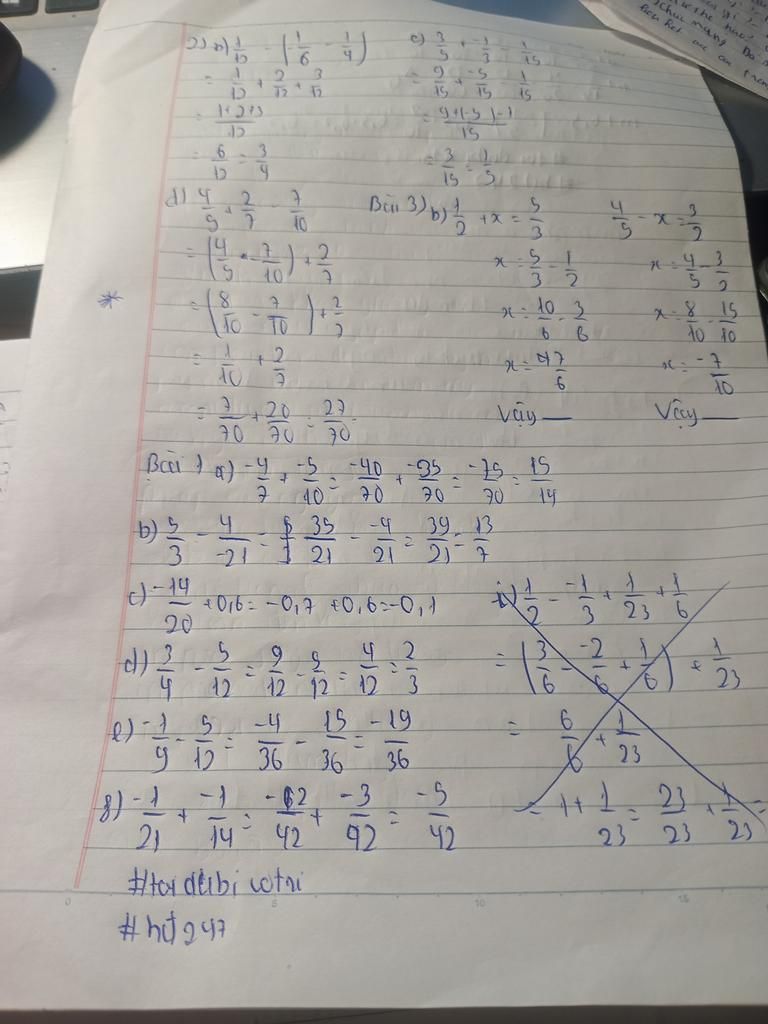 2) a) 1/12 - (-1/6 - 1/4)
= 1/12 + 2/12 + 3/12
= 1+2+3/12
= 6/12 = 3/4
c) 3/5 + -1/3 - 1/15
= 9/15 + -5/15 - 1/15
= 9+(-5)-1/15
= 3/15 = 1/5
d) 4/5 + 2/7 - 7/10
= (4/5 - 7/10) + 2/7
= (8/10 - 7/10) + 2/7
= 1/10 + 2/7
= 7/70 + 20/70 = 27/70
Bài 3) b) 1/2 + x = 5/3
x = 5/3 - 1/2
x = 10/6 - 3/6
x = 7/6
Vậy
4/5 - x = 3/2
x = 4/5 - 3/2
x = 8/10 - 15/10
x = -7/10
Vậy
Bài 1 a) -4/7 + -5/10 = -40/70 + -35/70 = -75/70 = 15/14
b) 5/3 - 4/-21 = 35/21 - -4/21 = 39/21 = 13/7
c) -14/20 + 0,6 = -0,7 + 0,6 = -0,1
d) 3/4 - 5/12 = 9/12 - 5/12 = 4/12 = 2/3
e) -1/9 - 5/12 = -4/36 - 15/36 = -19/36
g) -1/21 + -1/14 = -2/42 + -3/42 = -5/42
i) 1/2 - -1/3 + 1/23 + 1/6
= (3/6 - -2/6 + 1/6) + 1/23
= 6/6 + 1/23
= 1 + 1/23 = 23/23 + 1/23 =
0 5 10 15